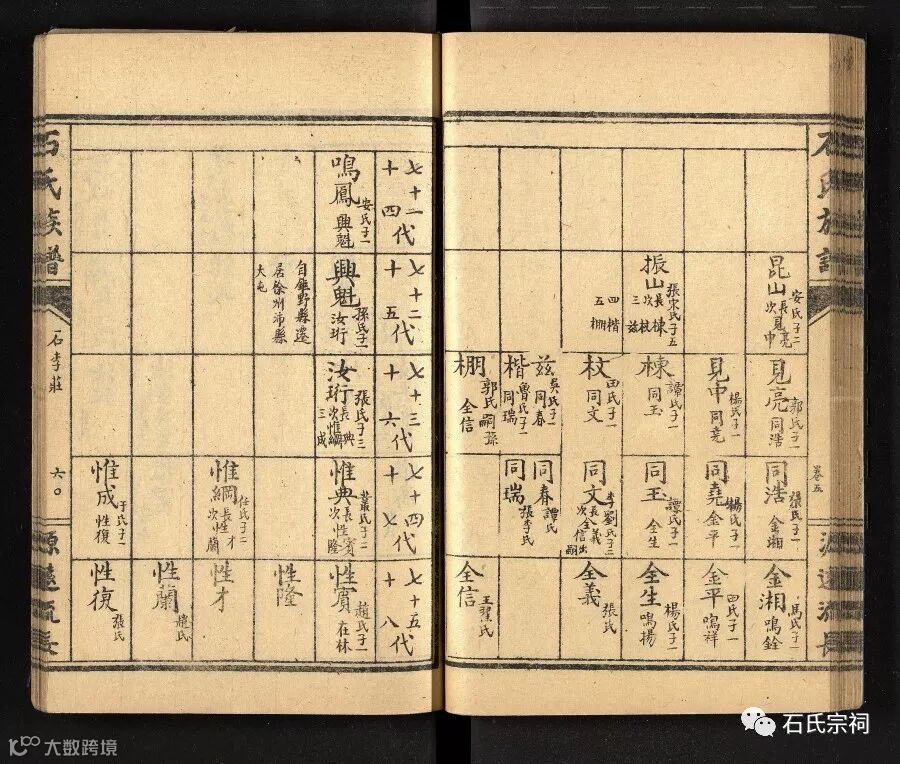 石氏族譜
卷五
源遠流長
昆山
安氏子二
長見亮
次見中
振山
張宋氏子五
長棟
次杖
三兹
四楷
五棚
見亮
郭氏子一
同浩
見中
楊氏子一
同堯
棟
譚氏子一
同玉
杖
田氏子一
同文
兹
吳氏子一
同春
楷
魯氏子一
同瑞
棚
郭氏嗣孫
全信
同浩
張氏子一
金湘
同堯
楊氏子一
金平
同玉
譚氏子一
全生
同文
李劉氏子二
長全義
次全信出嗣
同春
譚氏
同瑞
張李氏
金湘
馬氏子一
鳴銓
金平
田氏子一
鳴祥
全生
楊氏子一
鳴揚
全義
張氏
全信
王翟氏
七十一代
十四
七十二代
十五
七十三代
十六
七十四代
十七
七十五代
十八
鳴鳳
安氏子一
興魁
興魁
孫氏子一
汝珩
自鉅野縣遷
居徐州沛縣
大屯
汝珩
張氏子三
長惟典
次惟綱
三惟成
惟典
叢氏子二
長性賓
次性隆
惟綱
任氏子二
長性才
次性蘭
惟成
于氏子一
性復
性賓
趙氏子一
在林
性隆
性才
性蘭
龐氏
性復
張氏
石氏族譜
石李莊
六〇
源遠流長
石氏宗祠
大数跨境